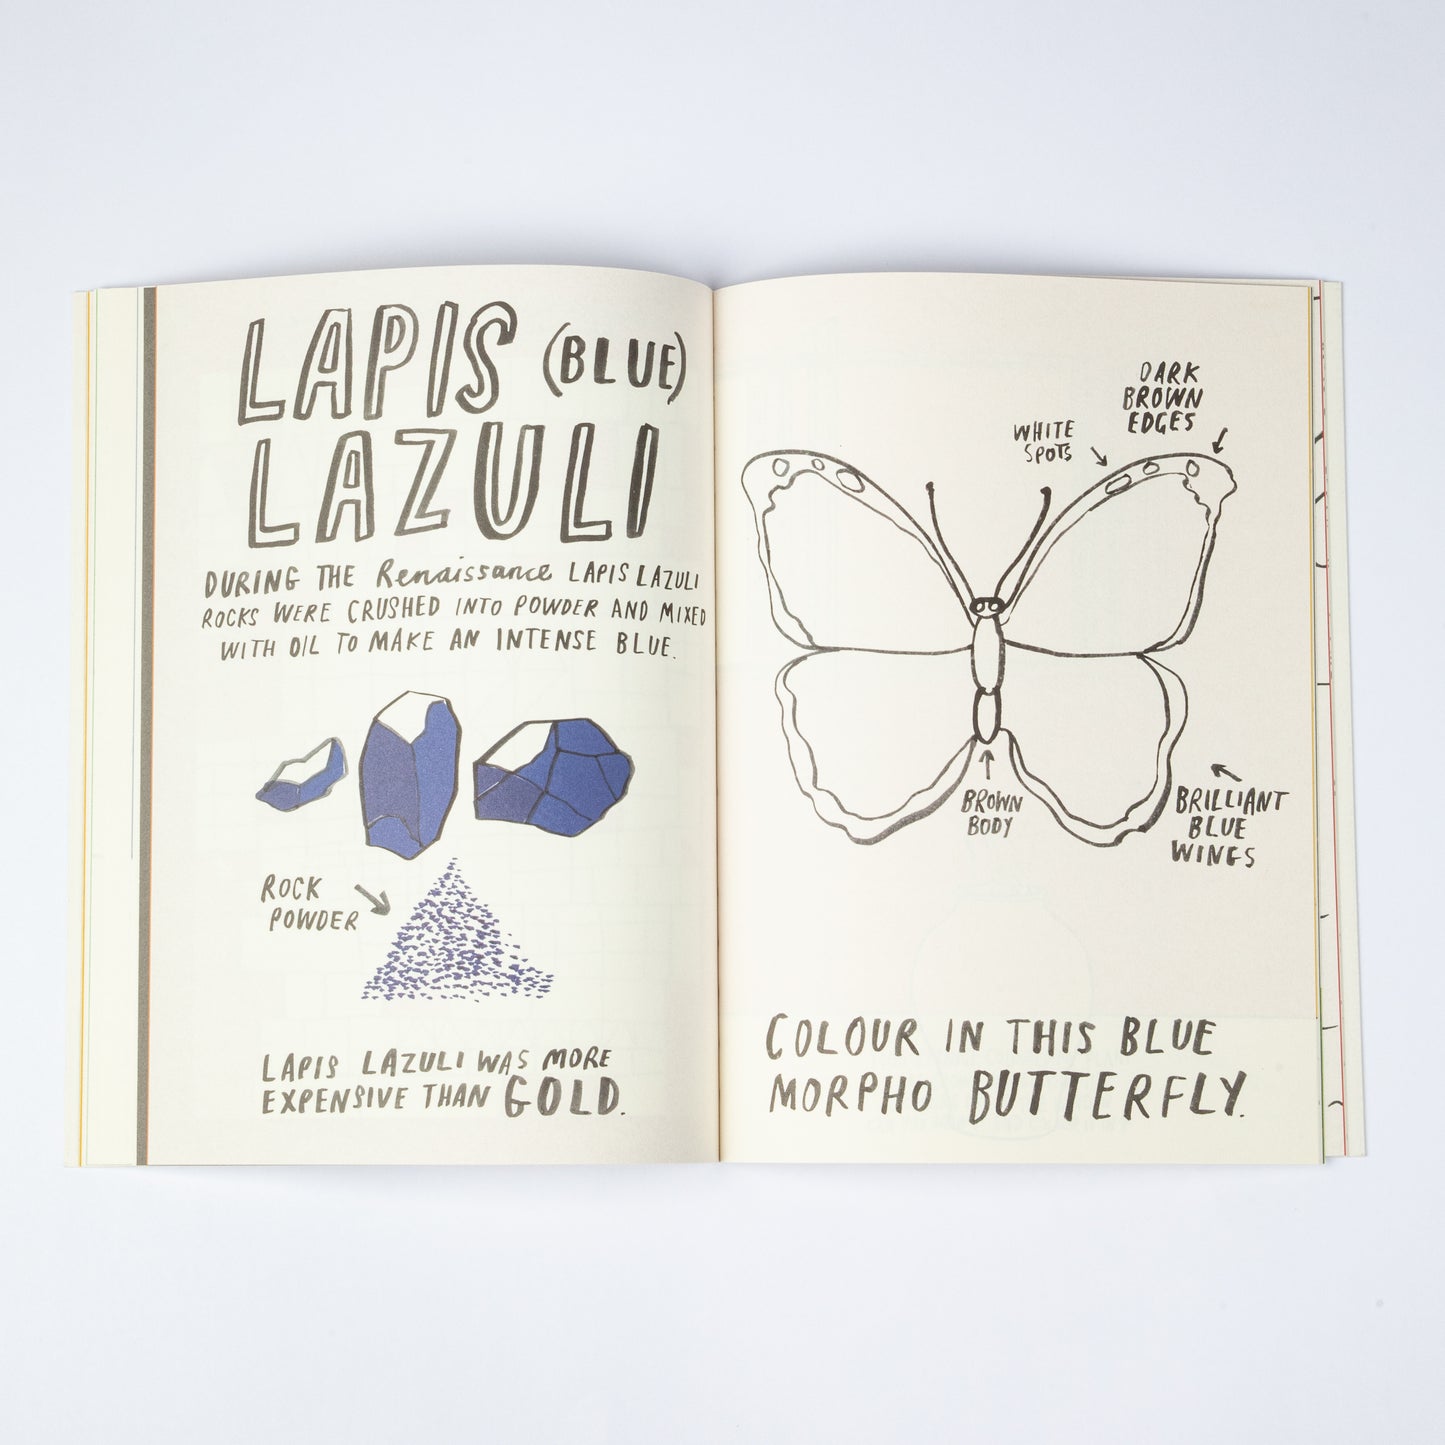 LAPIS (BLUE)
LAZULI
DURING THE Renaissance LAPIS LAZULI
ROCKS WERE CRUSHED INTO POWDER AND MIXED
WITH OIL TO MAKE AN INTENSE BLUE.
ROCK
POWDER
LAPIS LAZULI WAS MORE
EXPENSIVE THAN GOLD.
DARK
BROWN
EDGES
WHITE
SPOTS
BROWN
BODY
BRILLIANT
BLUE
WINGS
COLOUR IN THIS BLUE
MORPHO BUTTERFLY.